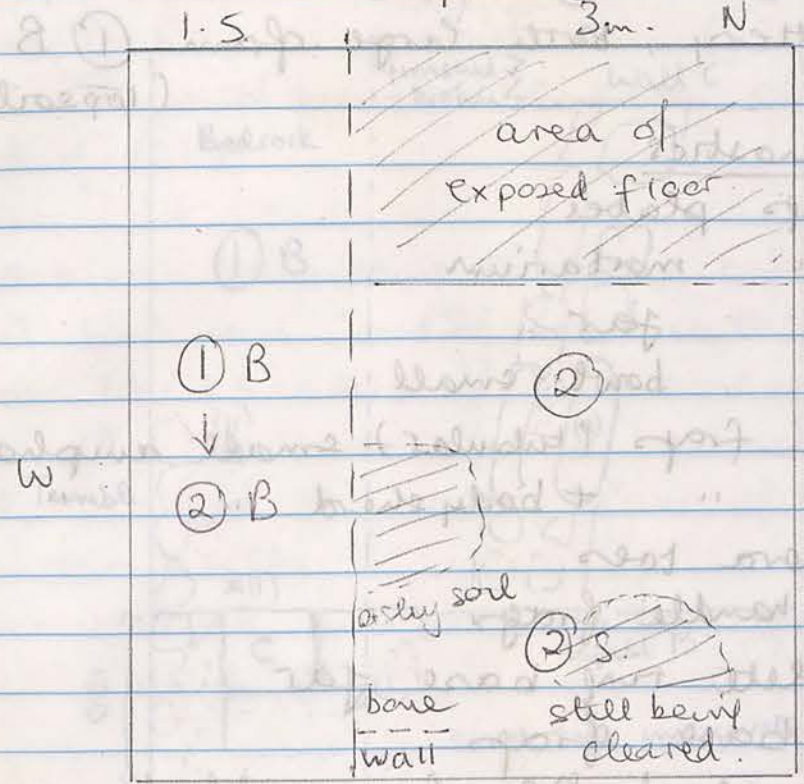 1.5. 3m. N
area of
exposed floor
① B ②
↓
W
② B
ashy soil
② S.
bone still being
wall cleared.